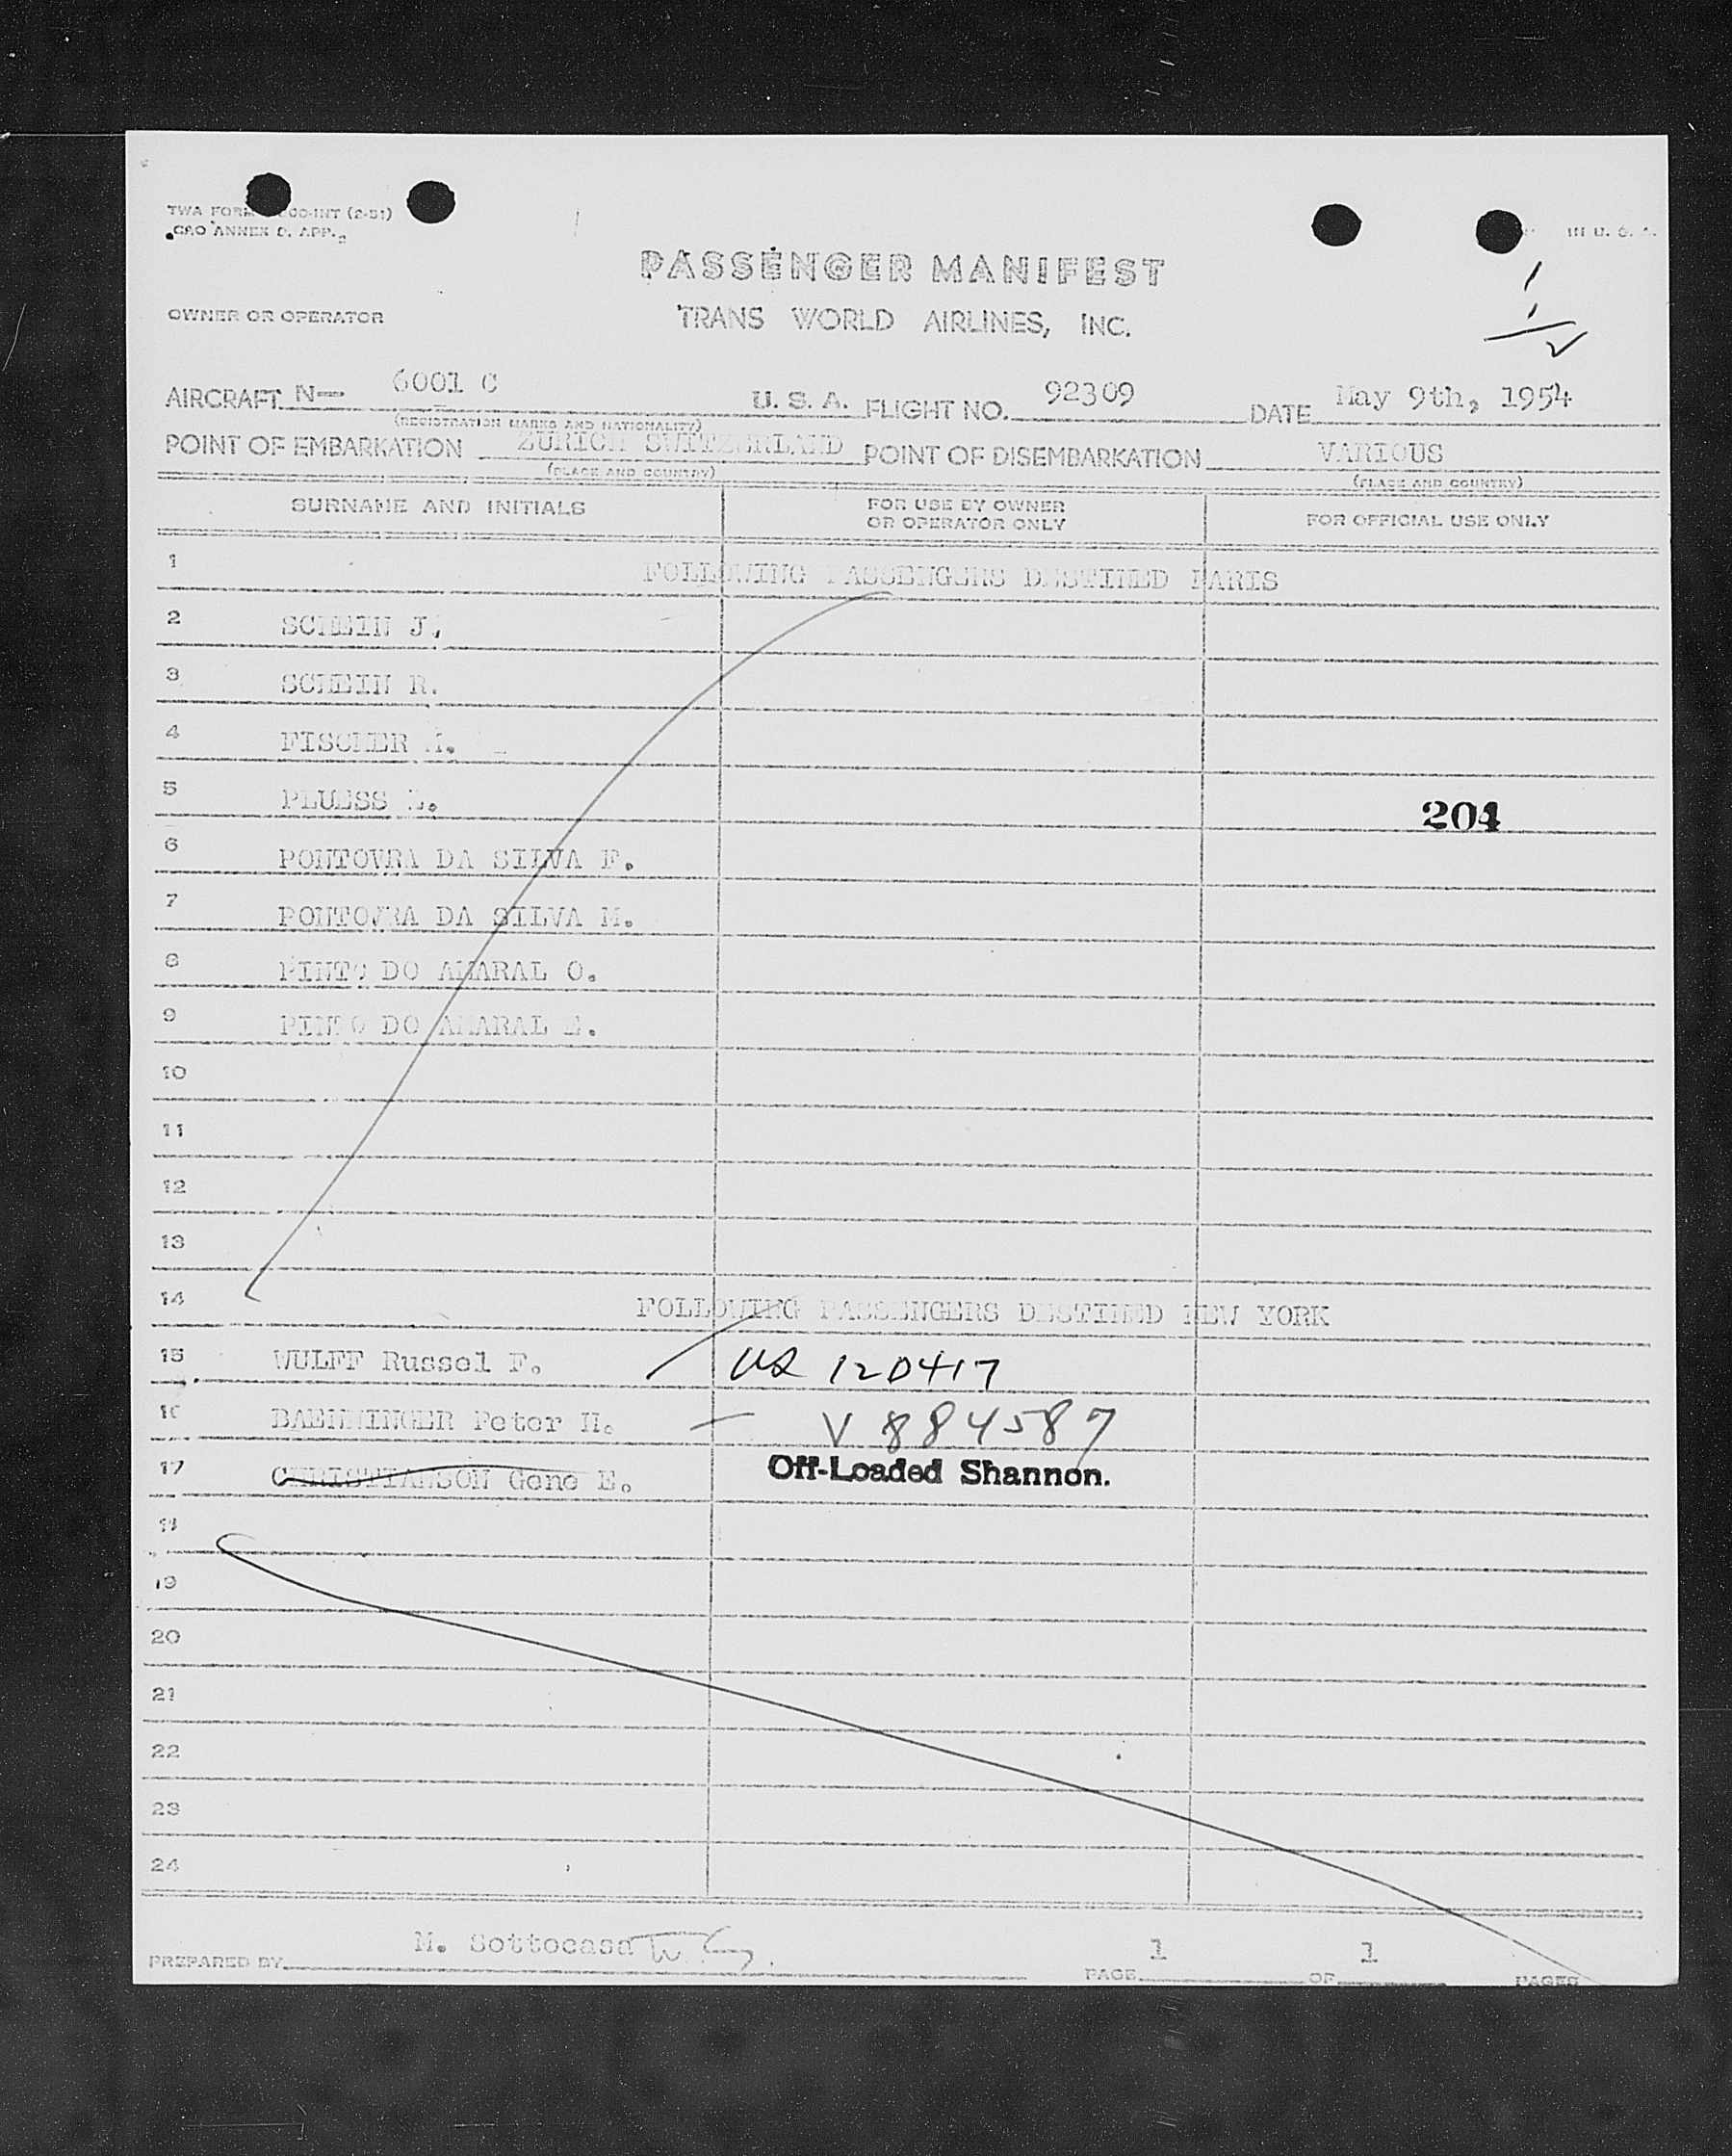 TWA FORM 00-INT (2-51)
ANNEX D. APP.
IN U. S. A.
PASSENGER MANIFEST
OWNER OR OPERATOR
TRANS WORLD AIRLINES, INC.
AIRCRAFT N— 6001 C U. S. A. FLIGHT NO. 92309 DATE May 9th, 1954
(REGISTRATION MARKS AND NATIONALITY)
POINT OF EMBARKATION ZURICH SWITZERLAND POINT OF DISEMBARKATION VARIOUS
(PLACE AND COUNTRY) (PLACE AND COUNTRY)
SURNAME AND INITIALS FOR USE BY OWNER OR OPERATOR ONLY FOR OFFICIAL USE ONLY
1 FOLLOWING PASSENGERS DESTINED PARIS
2 SCHEIN J.
3 SCHEIN R.
4 FISCHER
5 PLUESS
204
6 DA SILVA F.
7 DA SILVA M.
8 PINTO DO AMARAL O.
9 PINTO DO AMARAL
10
11
12
13
14 FOLLOWING PASSENGERS DESTINED NEW YORK
15 WULFF Russel F. US 120417
16 BAENNINGER Peter H. V 884587
17 CHRISTIANSON Gene E. Off-Loaded Shannon.
18
19
20
21
22
23
24
PREPARED BY M. Sottocasa PAGE 1 OF 1 PAGES